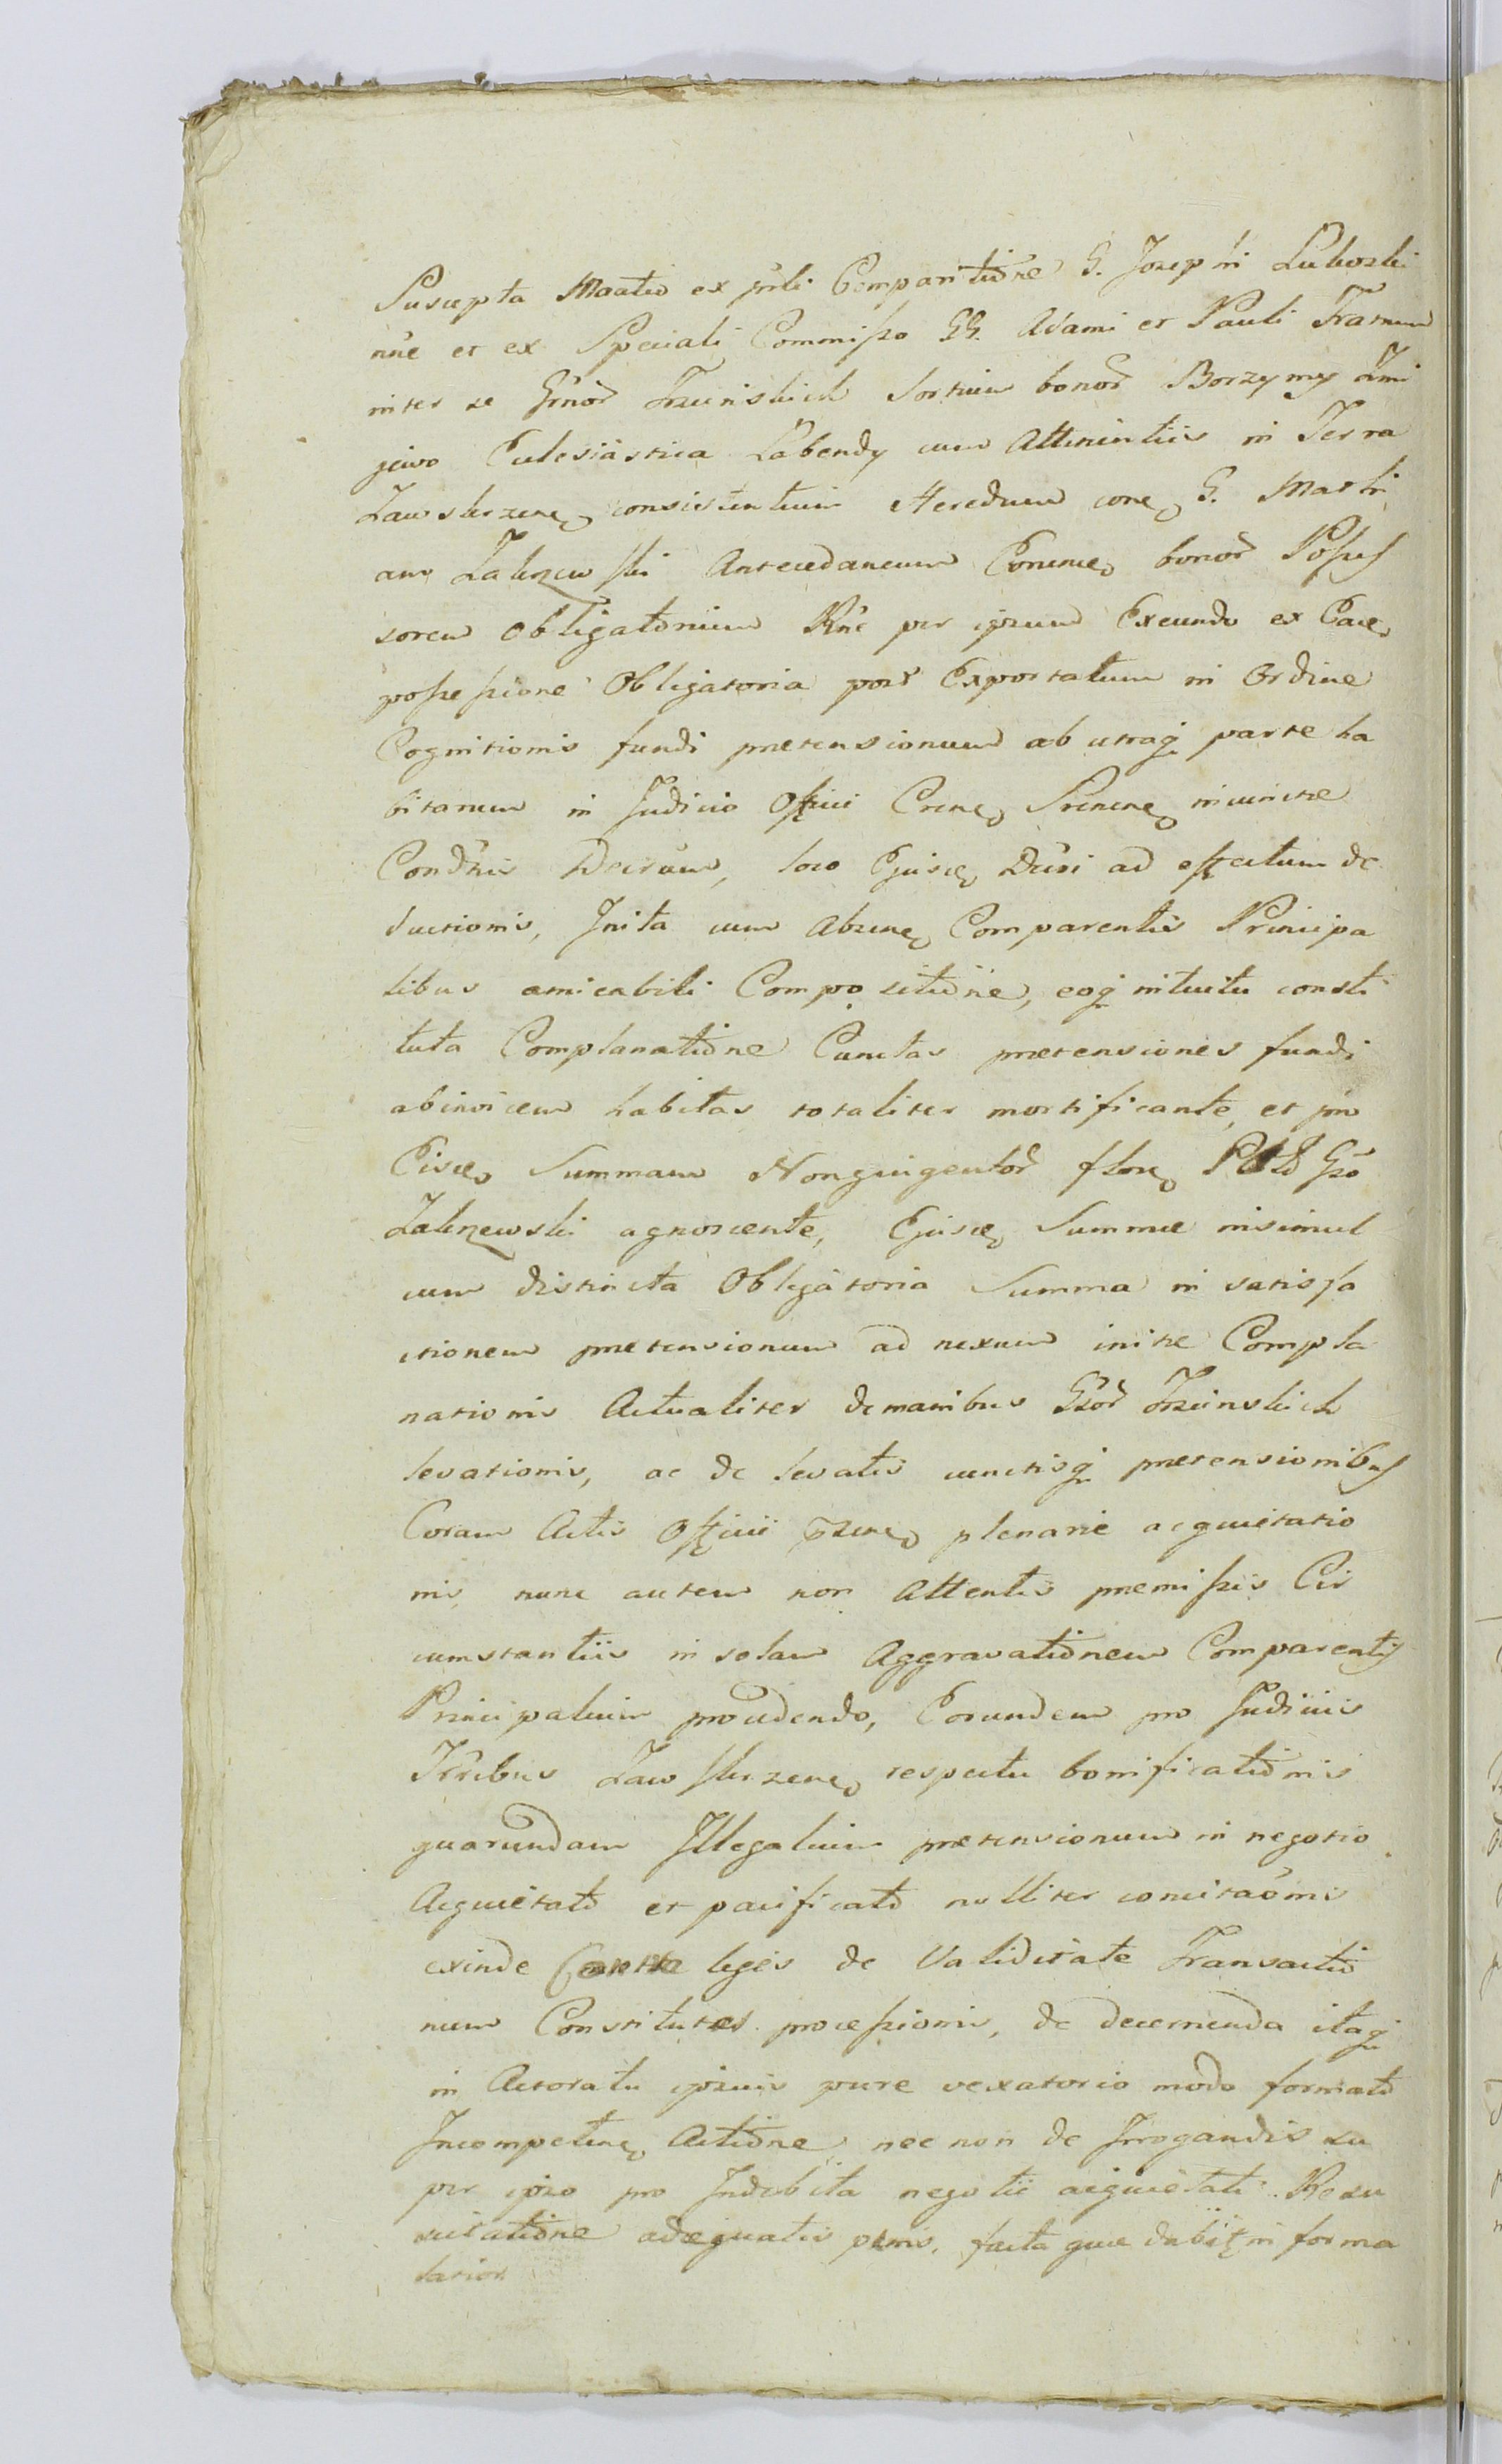 Suscepta Maatio ex prsli Comparitione G. Josephi Lubos
nne et ex Speciali Commisso GG. Adami et Pauli Fratrum
inter se Grnor Trzcinskich Sortium bonor Borzymy
Eclesiastica Labendy cum Attinentiis in Terra
Zawskrzene consistentium Heredum cone G. Math
am Zakrzewski Antecedaneum bonor Posses
sorem obligatorium Rne per ipsum Exeundo ex
possessione Obligatoria post Exportatum in Ordine
Cognitionis fundi pretensionum ab utraq parte ha
bitarum in Judicio Offcii
Condnis Decisum, loco Ejusce Dusi ad effectum de
ductionis, Inita cum Absene Comparentis Principa
libus amicabili Compositione, eoq intuitu consti
tuta Complanatione Cunctas pretensiones fundi
abinvicem habitas totaliter mortificante, et pro
Eisce Summam Nonguigentor flore Gso
Zakrzewski agnoscente, Ejusce Summe insimul
cum distincta Obligatoria Summa in satisfa
ctionem pretensionum ad nexum inite Compla
nationis Actualiter de manibus Gsor Trzcinskich
levationis, ac de levatis cunctisq pretensionibus
Coram Actis Offcii plenarie acquietatio
nis, nunc autem non Attentis premissis Cir
cumstantiis in solam Aggravationem Comparentis
Principalium procedendo, Eorundem pro Judiciis
Trribus Zawskrzene respectu bonificationis
quarundam Illegalium pretensionum in negotio
Acquietato et pacificato nulliter concitaonis
exinde Contra leges de Validitate Transactio
num Constitutas processionis, de decernenda itaq
in Actoratu ipsius pure vexatorio modo formato
Incompetene Actione, nec non de Irrogandis su
per ipso pro Indebita negotii acquietati Resu
scitatione adequatis penis, facta que in forma
latiori